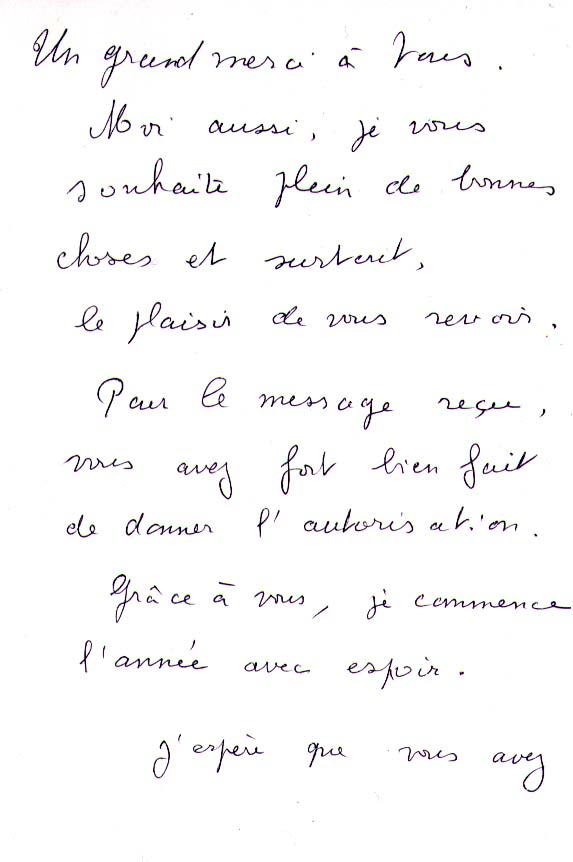 Un grand merci à vous.
Moi aussi, je vous
souhaite plein de bonnes
choses et surtout,
le plaisir de vous revoir.
Pour le message reçu,
vous avez fort bien fait
de donner l'autorisation.
Grâce à vous, je commence
l'année avec espoir.
J'espère que vous avez